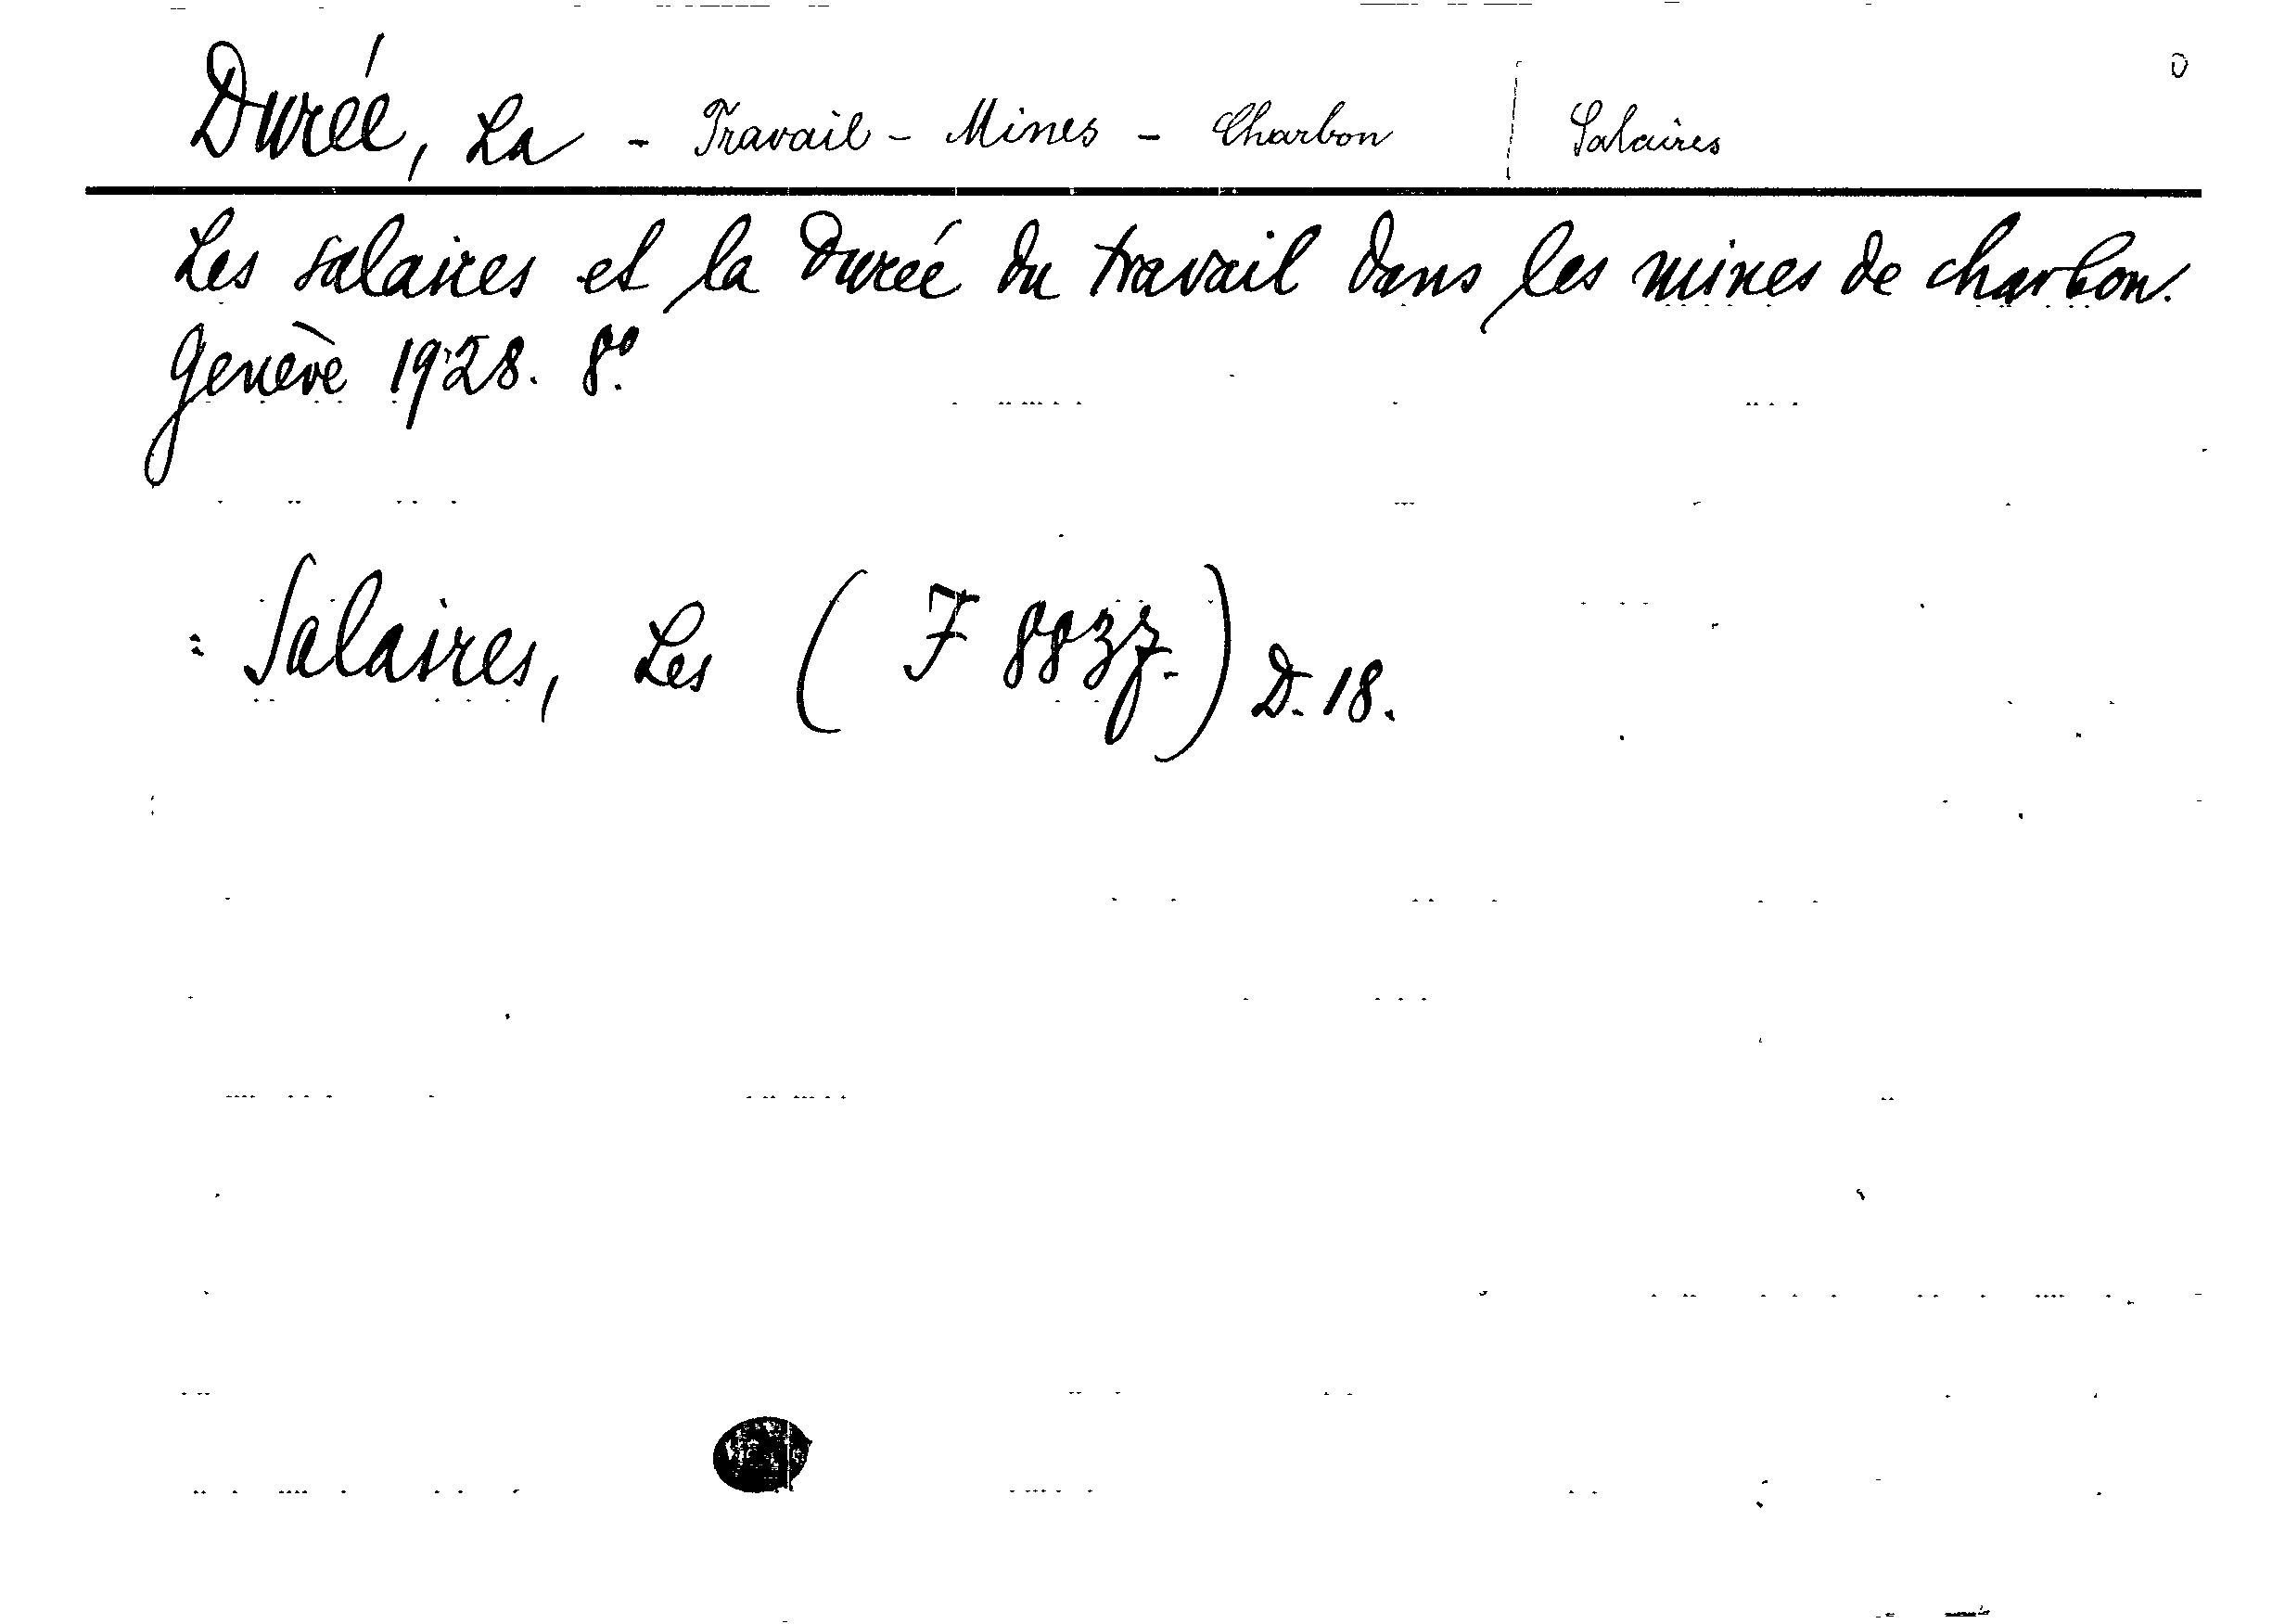 Durée, La - Travail - Mines - Charbon | Salaires
Les salaires et la durée du travail dans les mines de charbon.
Genève 1928. 8º.
= Salaires, Les (F 8837.) D. 18.